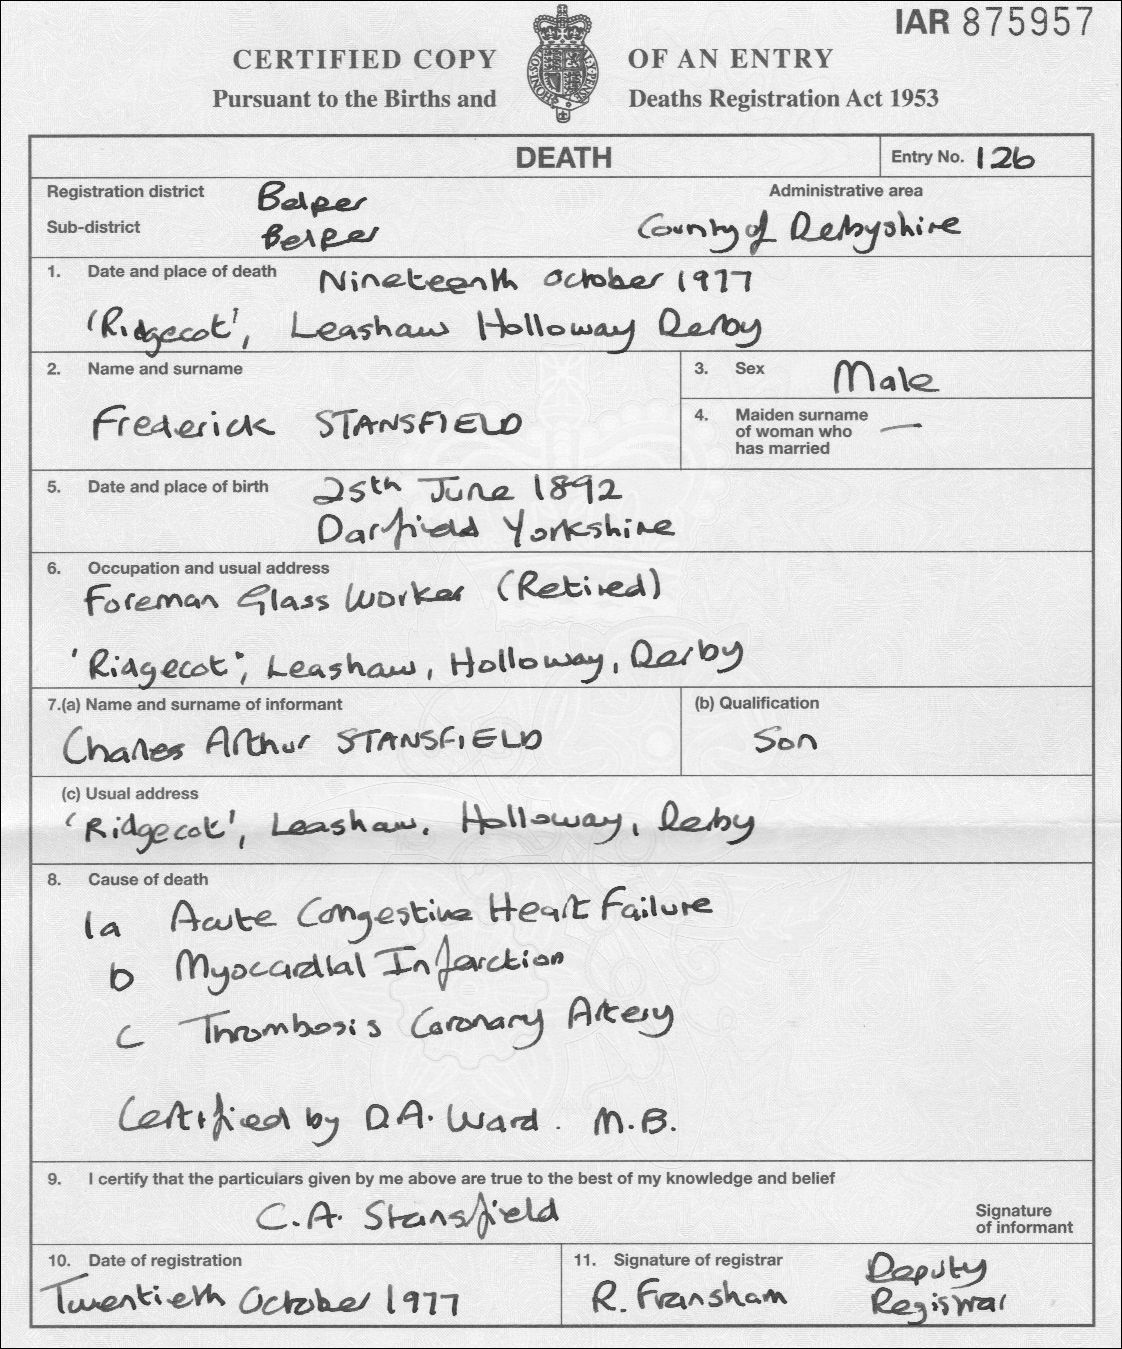 IAR 875957
CERTIFIED COPY OF AN ENTRY
Pursuant to the Births and Deaths Registration Act 1953
DEATH Entry No. 126
Registration district Belper Administrative area
Sub-district Belper County of Derbyshire
1. Date and place of death Nineteenth October 1977
'Ridgecot', Leashaw Holloway Derby
2. Name and surname
Frederick STANSFIELD
3. Sex Male
4. Maiden surname
of woman who —
has married
5. Date and place of birth 25th June 1892
Darfield Yorkshire
6. Occupation and usual address
Foreman Glass Worker (Retired)
'Ridgecot', Leashaw, Holloway, Derby
7.(a) Name and surname of informant
Charles Arthur STANSFIELD
(b) Qualification
Son
(c) Usual address
'Ridgecot', Leashaw, Holloway, Derby
8. Cause of death
1a Acute Congestive Heart Failure
b Myocardial Infarction
c Thrombosis Coronary Artery
Certified by D.A. Ward. M.B.
9. I certify that the particulars given by me above are true to the best of my knowledge and belief
C.A. Stansfield
Signature
of informant
10. Date of registration
Twentieth October 1977
11. Signature of registrar
R. Fransham
Deputy
Registrar